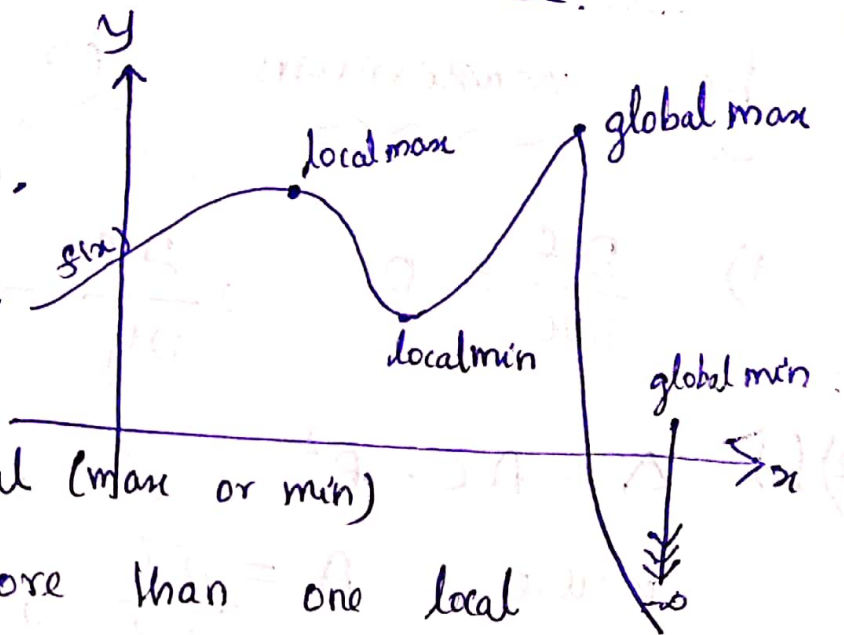 y
local max
global max
f(x)
local min
global min
x
(max or min)
than one local
-∞